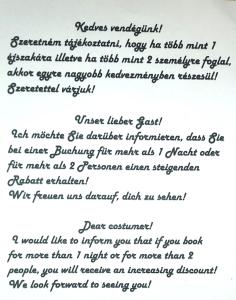 Kedves vendégünk!
Szeretném tájékoztatni, hogy ha több mint 1
éjszakára illetve ha több mint 2 személyre foglal,
akkor egyre nagyobb kedvezményben részesül!
Szeretettel várjuk!
Unser lieber Gast!
Ich möchte Sie darüber informieren, dass Sie
bei einer Buchung für mehr als 1 Nacht oder
für mehr als 2 Personen einen steigenden
Rabatt erhalten!
Wir freuen uns darauf, dich zu sehen!
Dear costumer!
I would like to inform you that if you book
for more than 1 night or for more than 2
people, you will receive an increasing discount!
We look forward to seeing you!